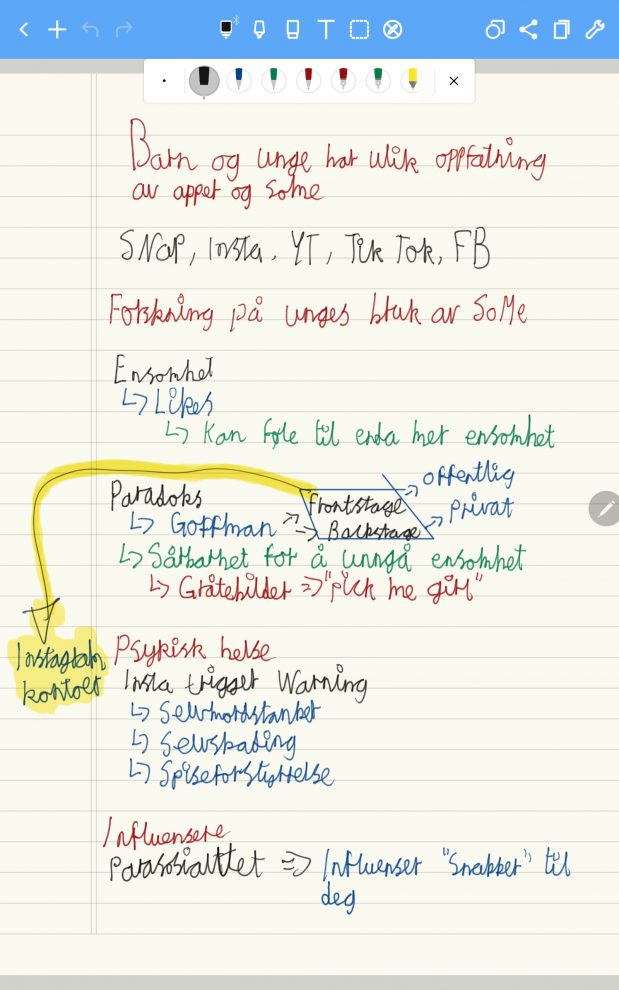 Barn og unge har ulik oppfatning
av apper og some
SNAP, Insta, YT, Tik Tok, FB
Forskning på unges bruk av SoMe
Ensomhet
↳ Likes
↳ Kan føle til enda mer ensomhet
Paradoks
↳ Goffman → Frontstage → Offentlig
⇒ Backstage → Privat
↳ Sårbarhet for å unngå ensomhet
↳ Gråtebilder => "pick me girl"
Instagram
kontoer
Psykisk helse
Insta trigger Warning
↳ Selvmordstanker
↳ Selvskading
↳ Spiseforstyrrelse
Influensere
Parasosialitet => Influenser "Snakker" til
deg